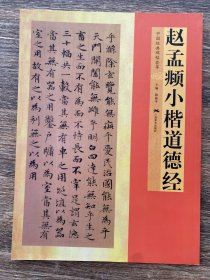 赵孟頫小楷道德经
乎滌除玄覽能無疵乎愛民治國能無為乎
天門開闔能無雌乎明白四達能無知乎生之
畜之生而不有為而不恃長而不宰是謂玄德
三十輻共一轂當其無有車之用埏埴以為器
當其無有器之用鑿户牖以為室當其無有
室之用故有之以為利無之以為用